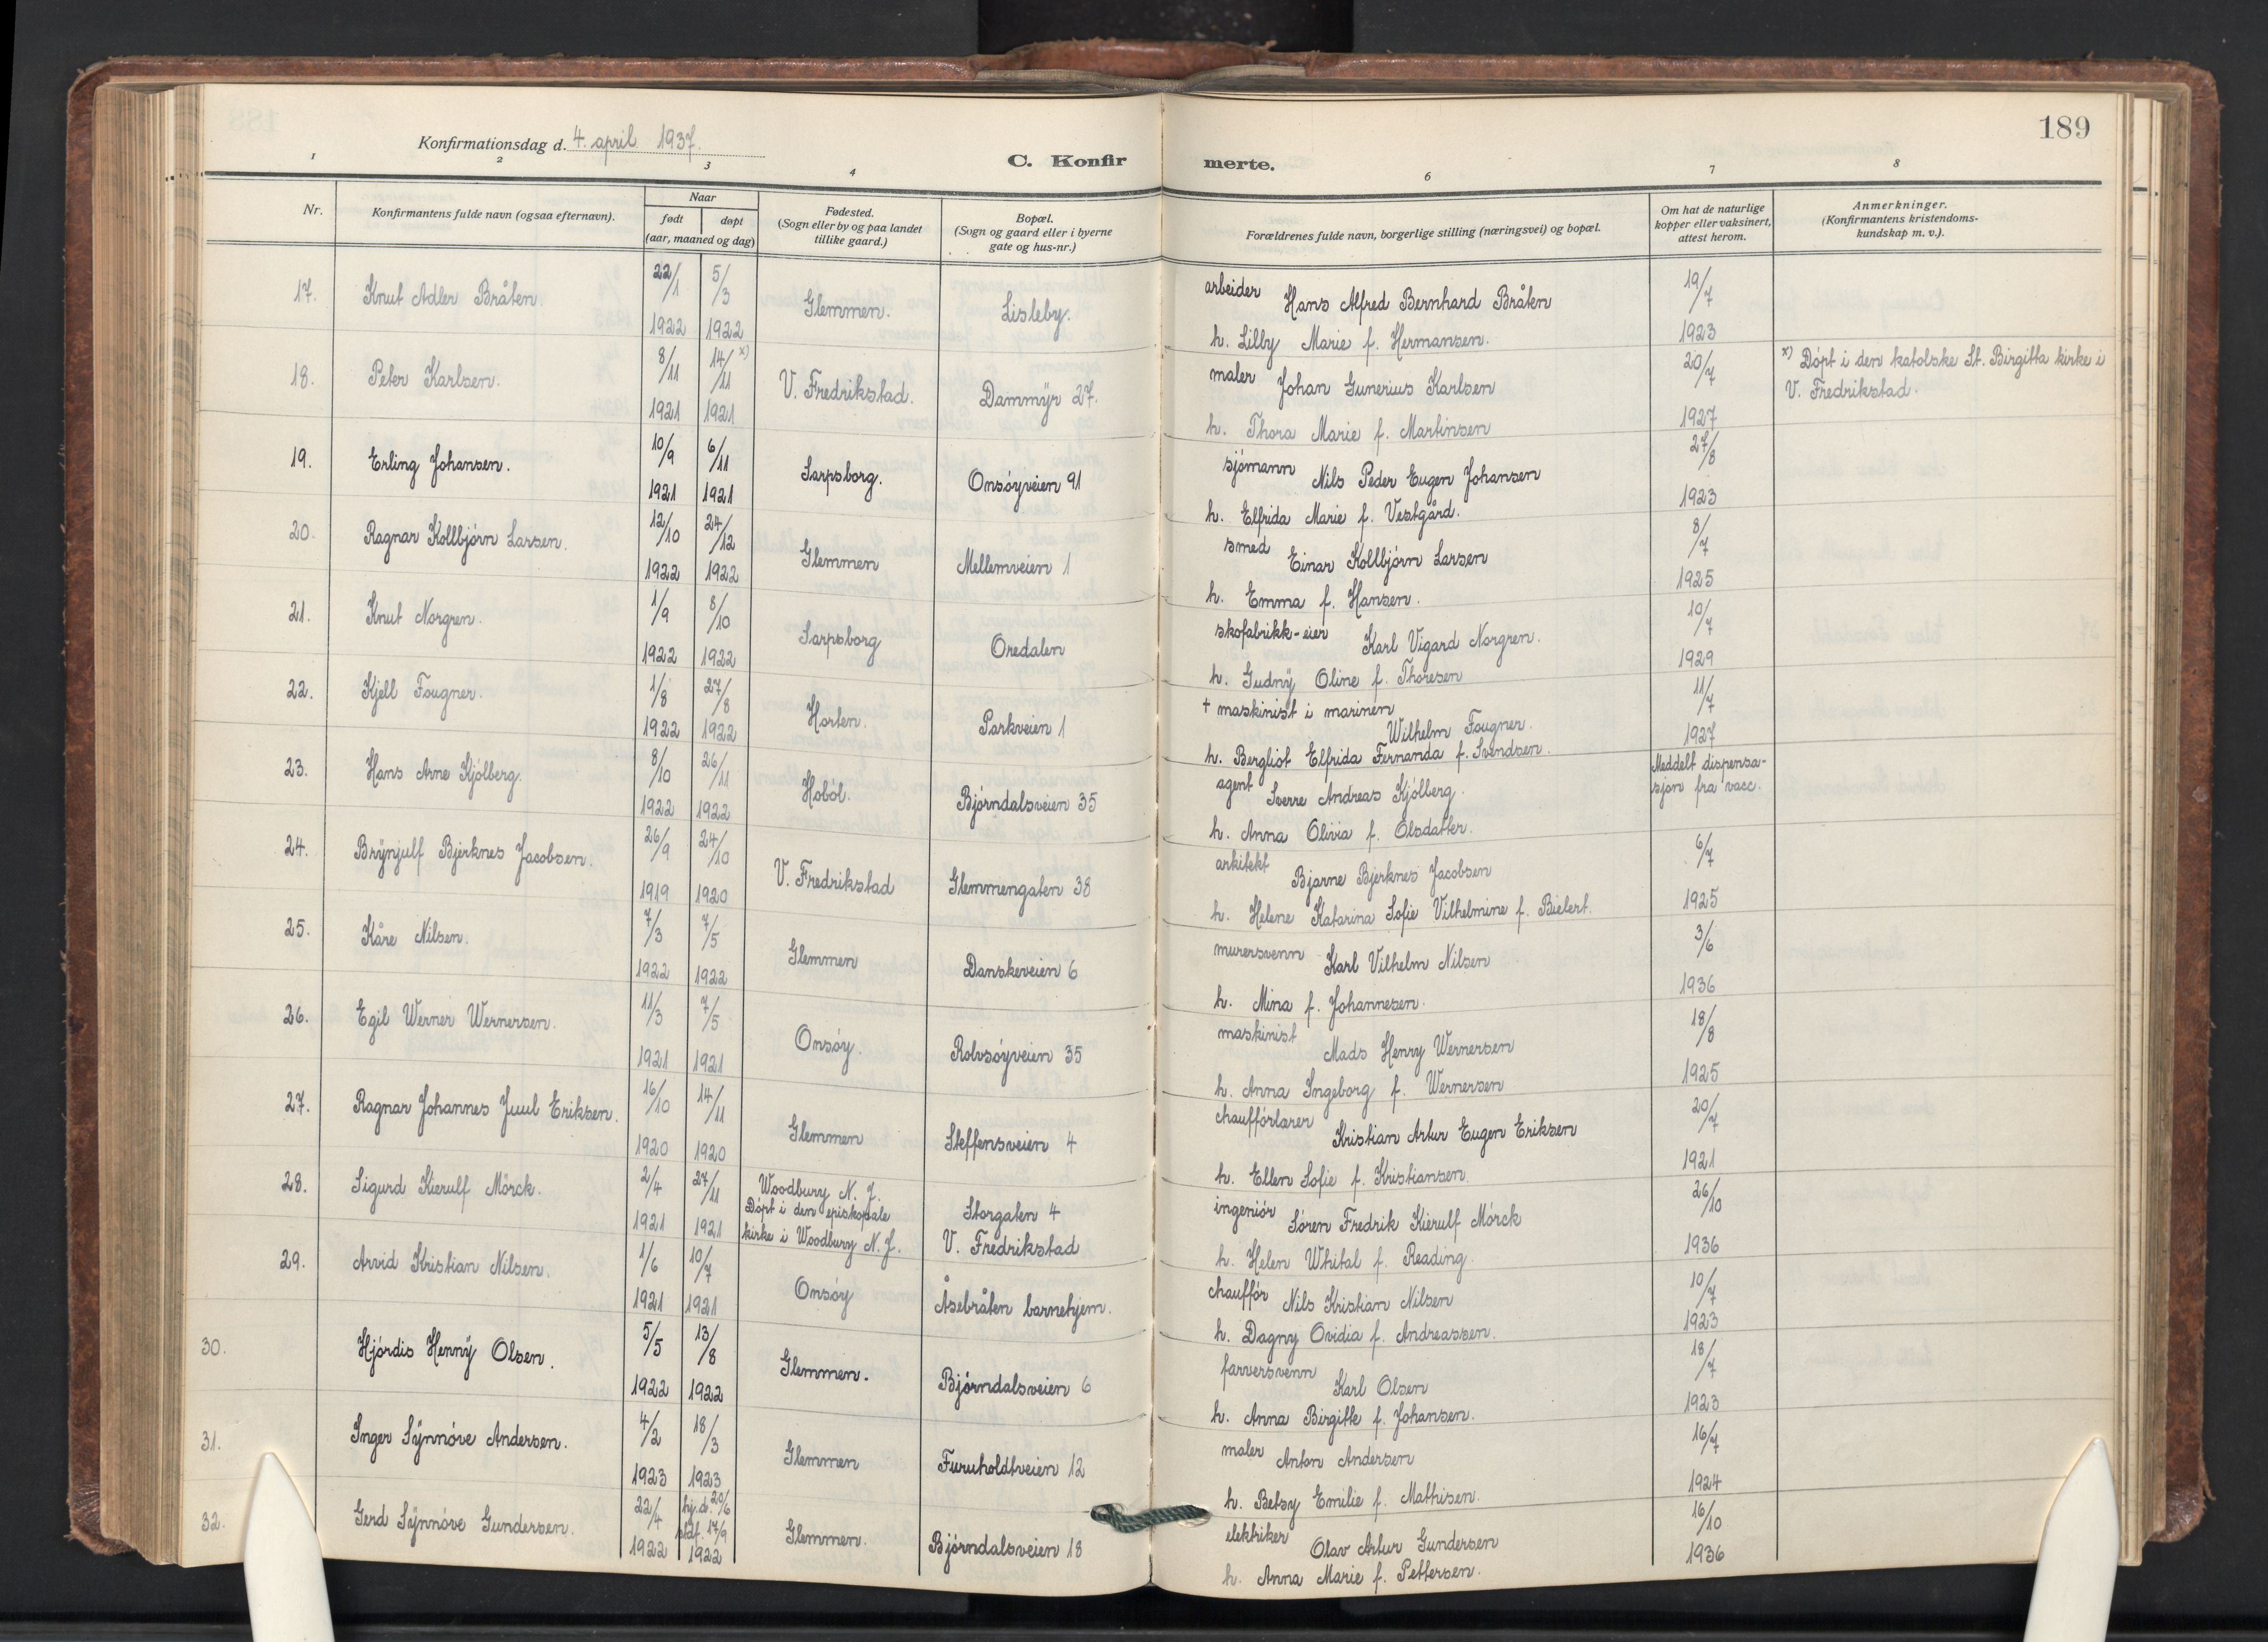 189
Konfirmationsdag d. 4. april 1937.
C. Konfir merte.
1 2 3 4 6 7 8
Nr.
Konfirmantens fulde navn (ogsaa efternavn).
Naar
født døpt
(aar, maaned og dag)
Fødested.
(Sogn eller by og paa landet
tillike gaard.)
Bopæl.
(Sogn og gaard eller i byerne
gate og hus-nr.)
Forældrenes fulde navn, borgerlige stilling (næringsvei) og bopæl.
Om hat de naturlige
kopper eller vaksinert,
attest herom.
Anmerkninger.
(Konfirmantens kristendoms-
kundskap m. v.).
17. Knut Adler Bråten. 22/1 1922 5/3 1922 Glemmen. Lisleby.
arbeider Hans Alfred Bernhard Bråten 19/7
h. Lilly Marie f. Hermansen. 1923
18. Peter Karlsen. 8/11 1921 14/11 x) 1921 V. Fredrikstad. Dammyr 27.
maler Johan Gunerius Karlsen 20/7
h. Thora Marie f. Martinsen 1927
x) Döpt i den katolske St. Birgitta kirke i
V. Fredrikstad.
19. Erling Johansen. 10/9 1921 6/11 1921 Sarpsborg. Onsöyveien 91
sjömann Nils Peder Eugen Johansen 27/8
h. Elfrida Marie f. Vestgård. 1923
20. Ragnar Kollbjörn Larsen. 12/10 1922 24/12 1922 Glemmen Mellemveien 1
smed Einar Kollbjörn Larsen 8/7
h. Emma f. Hansen. 1925
21. Knut Norgren. 1/9 1922 8/10 1922 Sarpsborg Oredalen
skofabrikk-eier Karl Vigard Norgren. 10/7
h. Gudny Oline f. Thoresen 1929
22. Kjell Fougner. 1/8 1922 27/8 1922 Horten. Parkveien 1
+ maskinist i marinen 11/7
Wilhelm Fougner. 1927
h. Bergliot Elfrida Fernanda f. Svendsen.
23. Hans Arne Kjölberg. 8/10 1922 26/11 1922 Hoböl. Bjørndalsveien 35
agent Sverre Andreas Kjölberg. Meddelt dispensa-
sjon fra vacc.
h. Anna Olivia f. Olsdatter.
24. Brynjulf Bjerknes Jacobsen. 26/9 1919 24/10 1920 V. Fredrikstad Glemmengaten 38
arkitekt Bjarne Bjerknes Jacobsen 6/7
h. Helene Katarina Sofie Vilhelmine f. Bielert. 1925
25. Kåre Nilsen. 7/3 1922 7/5 1922 Glemmen Danskeveien 6
murersvenn Karl Vilhelm Nilsen 3/6
h. Mina f. Johannesen. 1936
26. Egil Werner Wernersen. 11/3 1921 7/5 1921 Onsöy. Rolvsöyveien 35
maskinist Mads Henry Wernersen 18/8
h. Anna Ingeborg f. Wernersen 1925
27. Ragnar Johannes Juul Eriksen. 16/10 1920 14/11 1920 Glemmen Steffensveien 4
chaufförlærer Kristian Artur Eugen Eriksen 20/7
h. Ellen Sofie f. Kristiansen. 1921
28. Sigurd Kierulf Mörck. 2/4 1921 27/11 1921 Woodbury N. J.
Döpt i den episkopale
kirke i Woodbury N. J.
Storgaten 4
V. Fredrikstad
ingeniör Sören Fredrik Kierulf Mörck 26/10
h. Helen Whital f. Reading. 1936
29. Arvid Kristian Nilsen. 1/6 1921 10/7 1921 Onsöy Åsebråten barnehjem.
chaufför Nils Kristian Nilsen 10/7
h. Dagny Ovidia f. Andreassen. 1923
30. Hjördis Henny Olsen. 5/5 1922 13/8 1922 Glemmen. Bjørndalsveien 6
farversvenn Karl Olsen 18/7
h. Anna Birgitte f. Johansen. 1923
31. Inger Synnöve Andersen. 4/2 1923 18/3 1923 Glemmen Furuholdtveien 12
maler Anton Andersen 16/7
h. Betsy Emilie f. Mathisen. 1924
32. Gerd Synnöve Gundersen. 22/4 1922 hj.d. 20/6 stdf. 17/9 1922 Glemmen. Bjørndalsveien 18
elektriker Olav Artur Gundersen 16/10
h. Anna Marie f. Pettersen. 1936